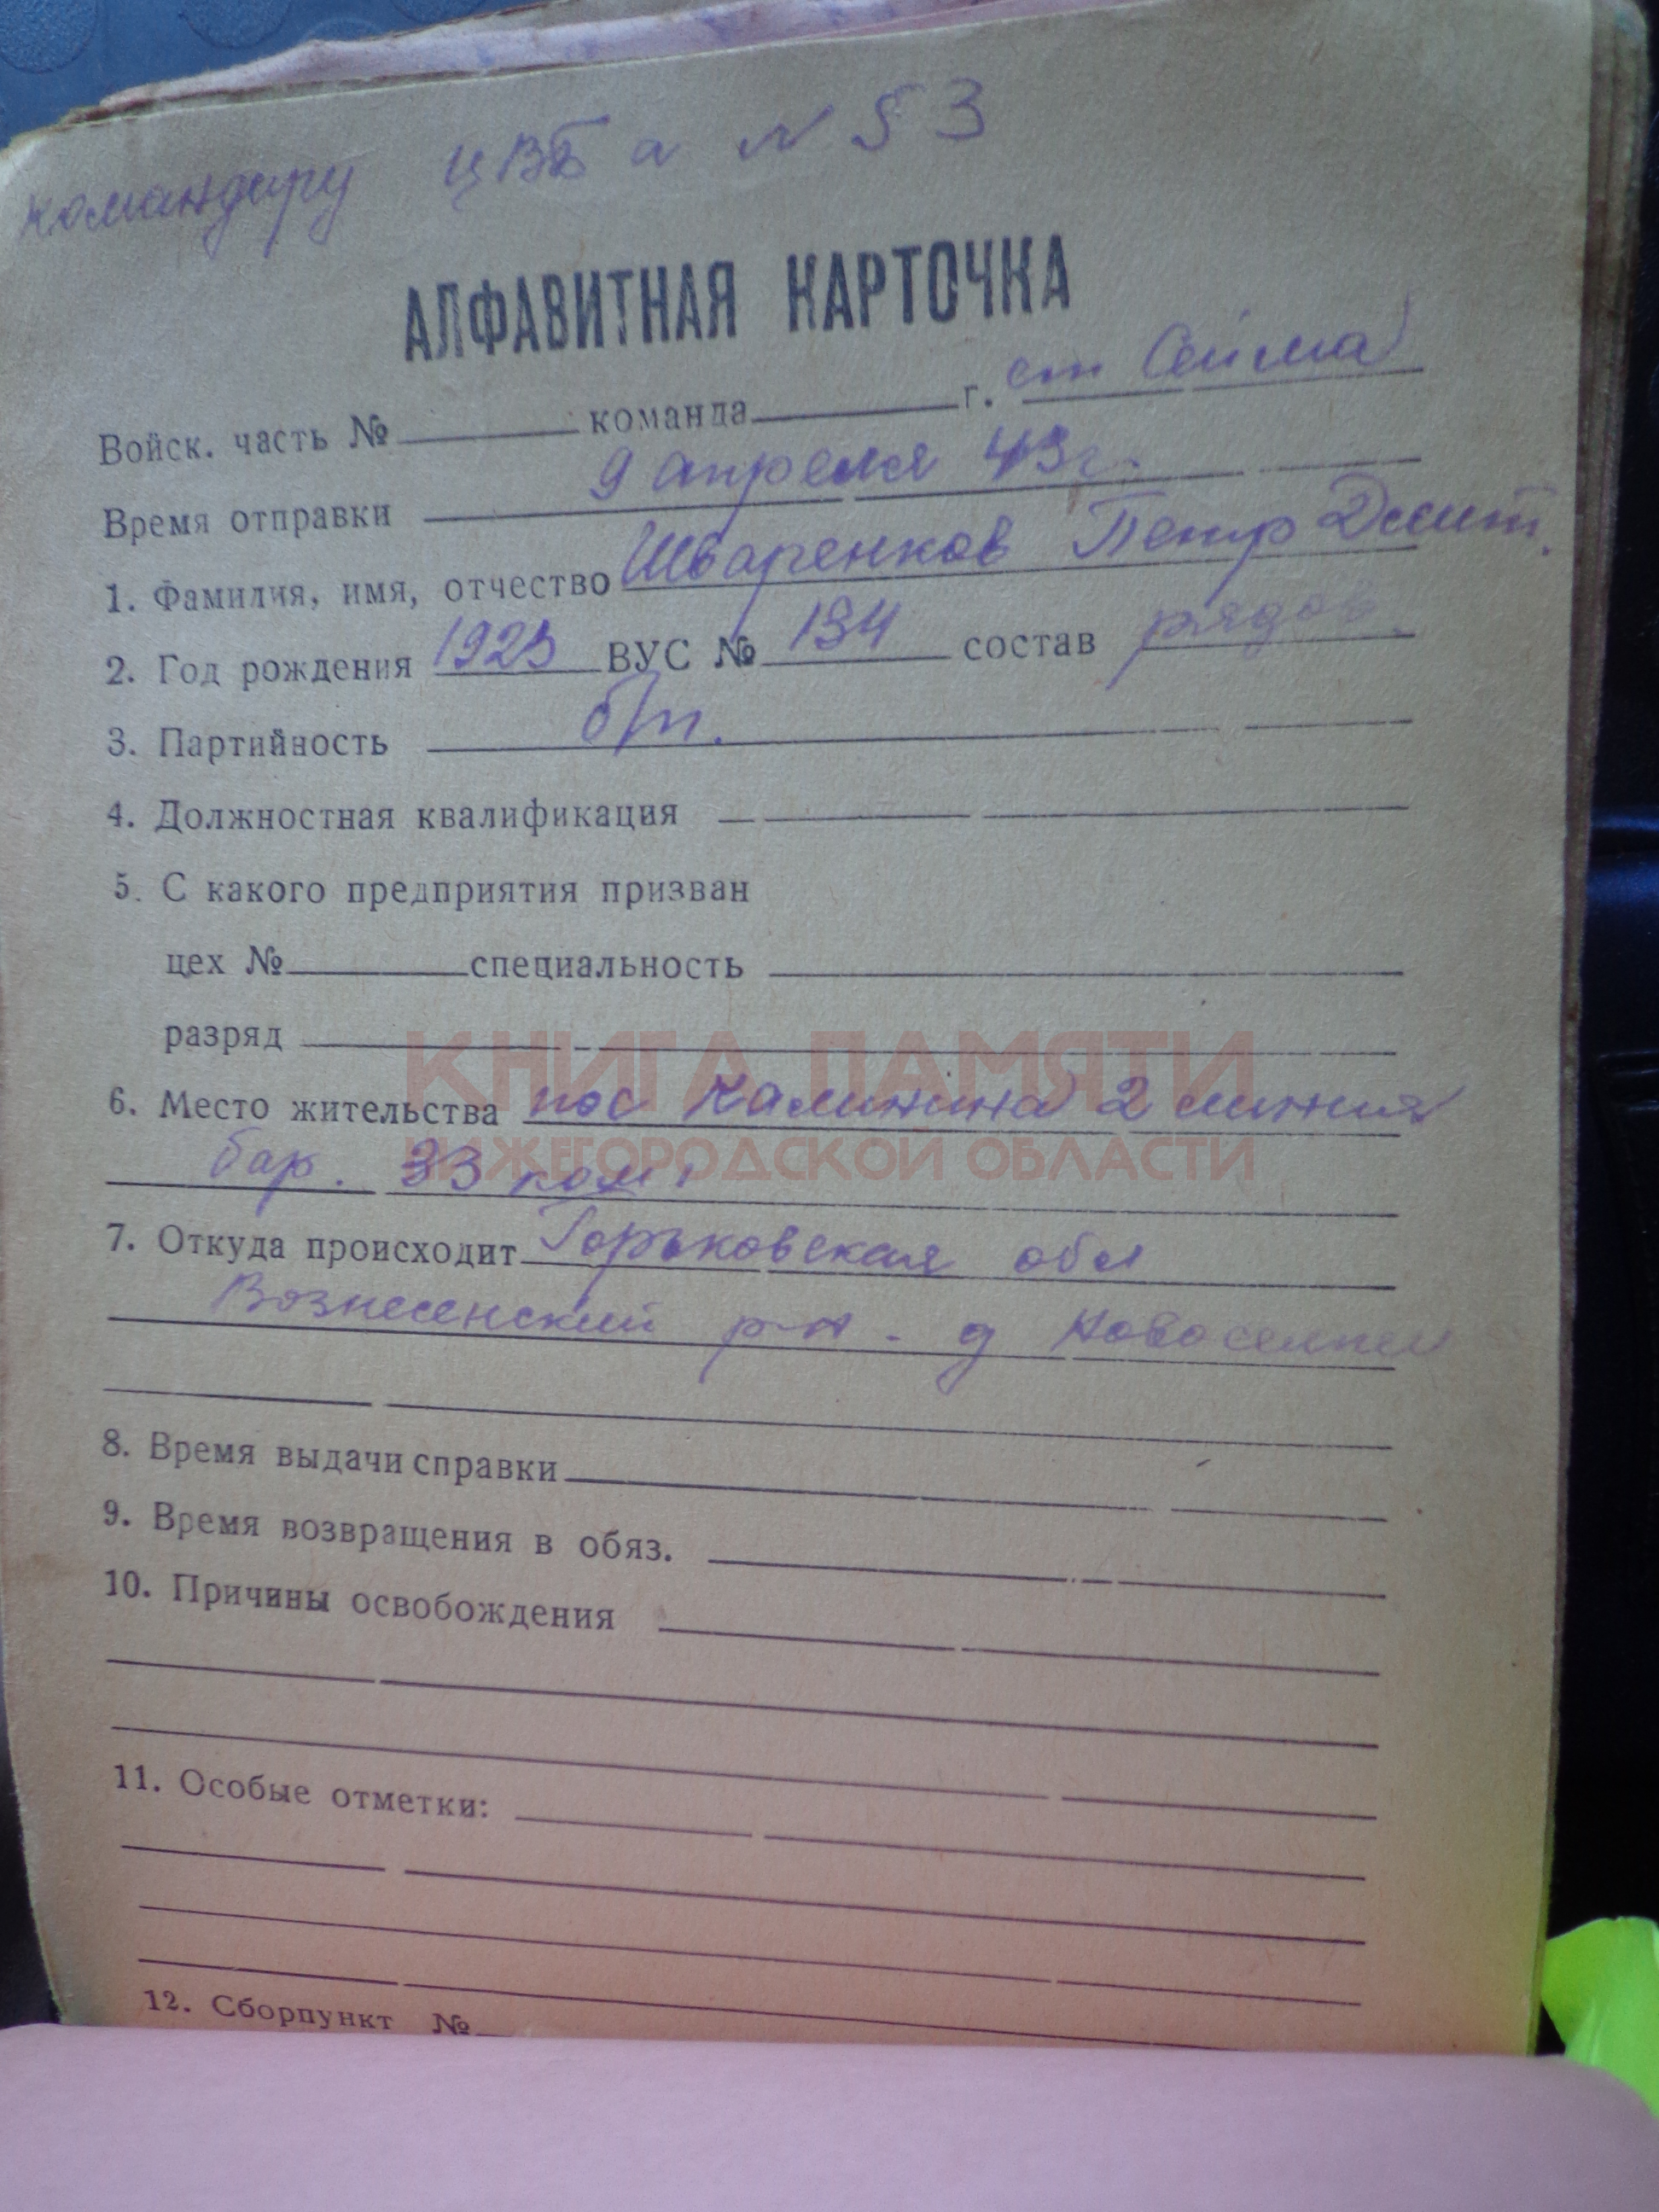 командиру ЦВБ а N 53
АЛФАВИТНАЯ КАРТОЧКА
Войск. часть № команда г. ст Сейма
Время отправки 9 апреля 43г.
1. Фамилия, имя, отчество Шваренков Петр Дмит.
2. Год рождения 1925 ВУС № 134 состав рядов.
3. Партийность б/п.
4. Должностная квалификация
5. С какого предприятия призван
цех № специальность
разряд
КНИГА ПАМЯТИ
6. Место жительства пос Калинина 2 линия
НИЖЕГОРОДСКОЙ ОБЛАСТИ
бар. 33 ком.
7. Откуда происходит Горьковская обл
Вознесенский р-н - д Новоселки
8. Время выдачи справки
9. Время возвращения в обяз.
10. Причины освобождения
11. Особые отметки:
12. Сборпункт №